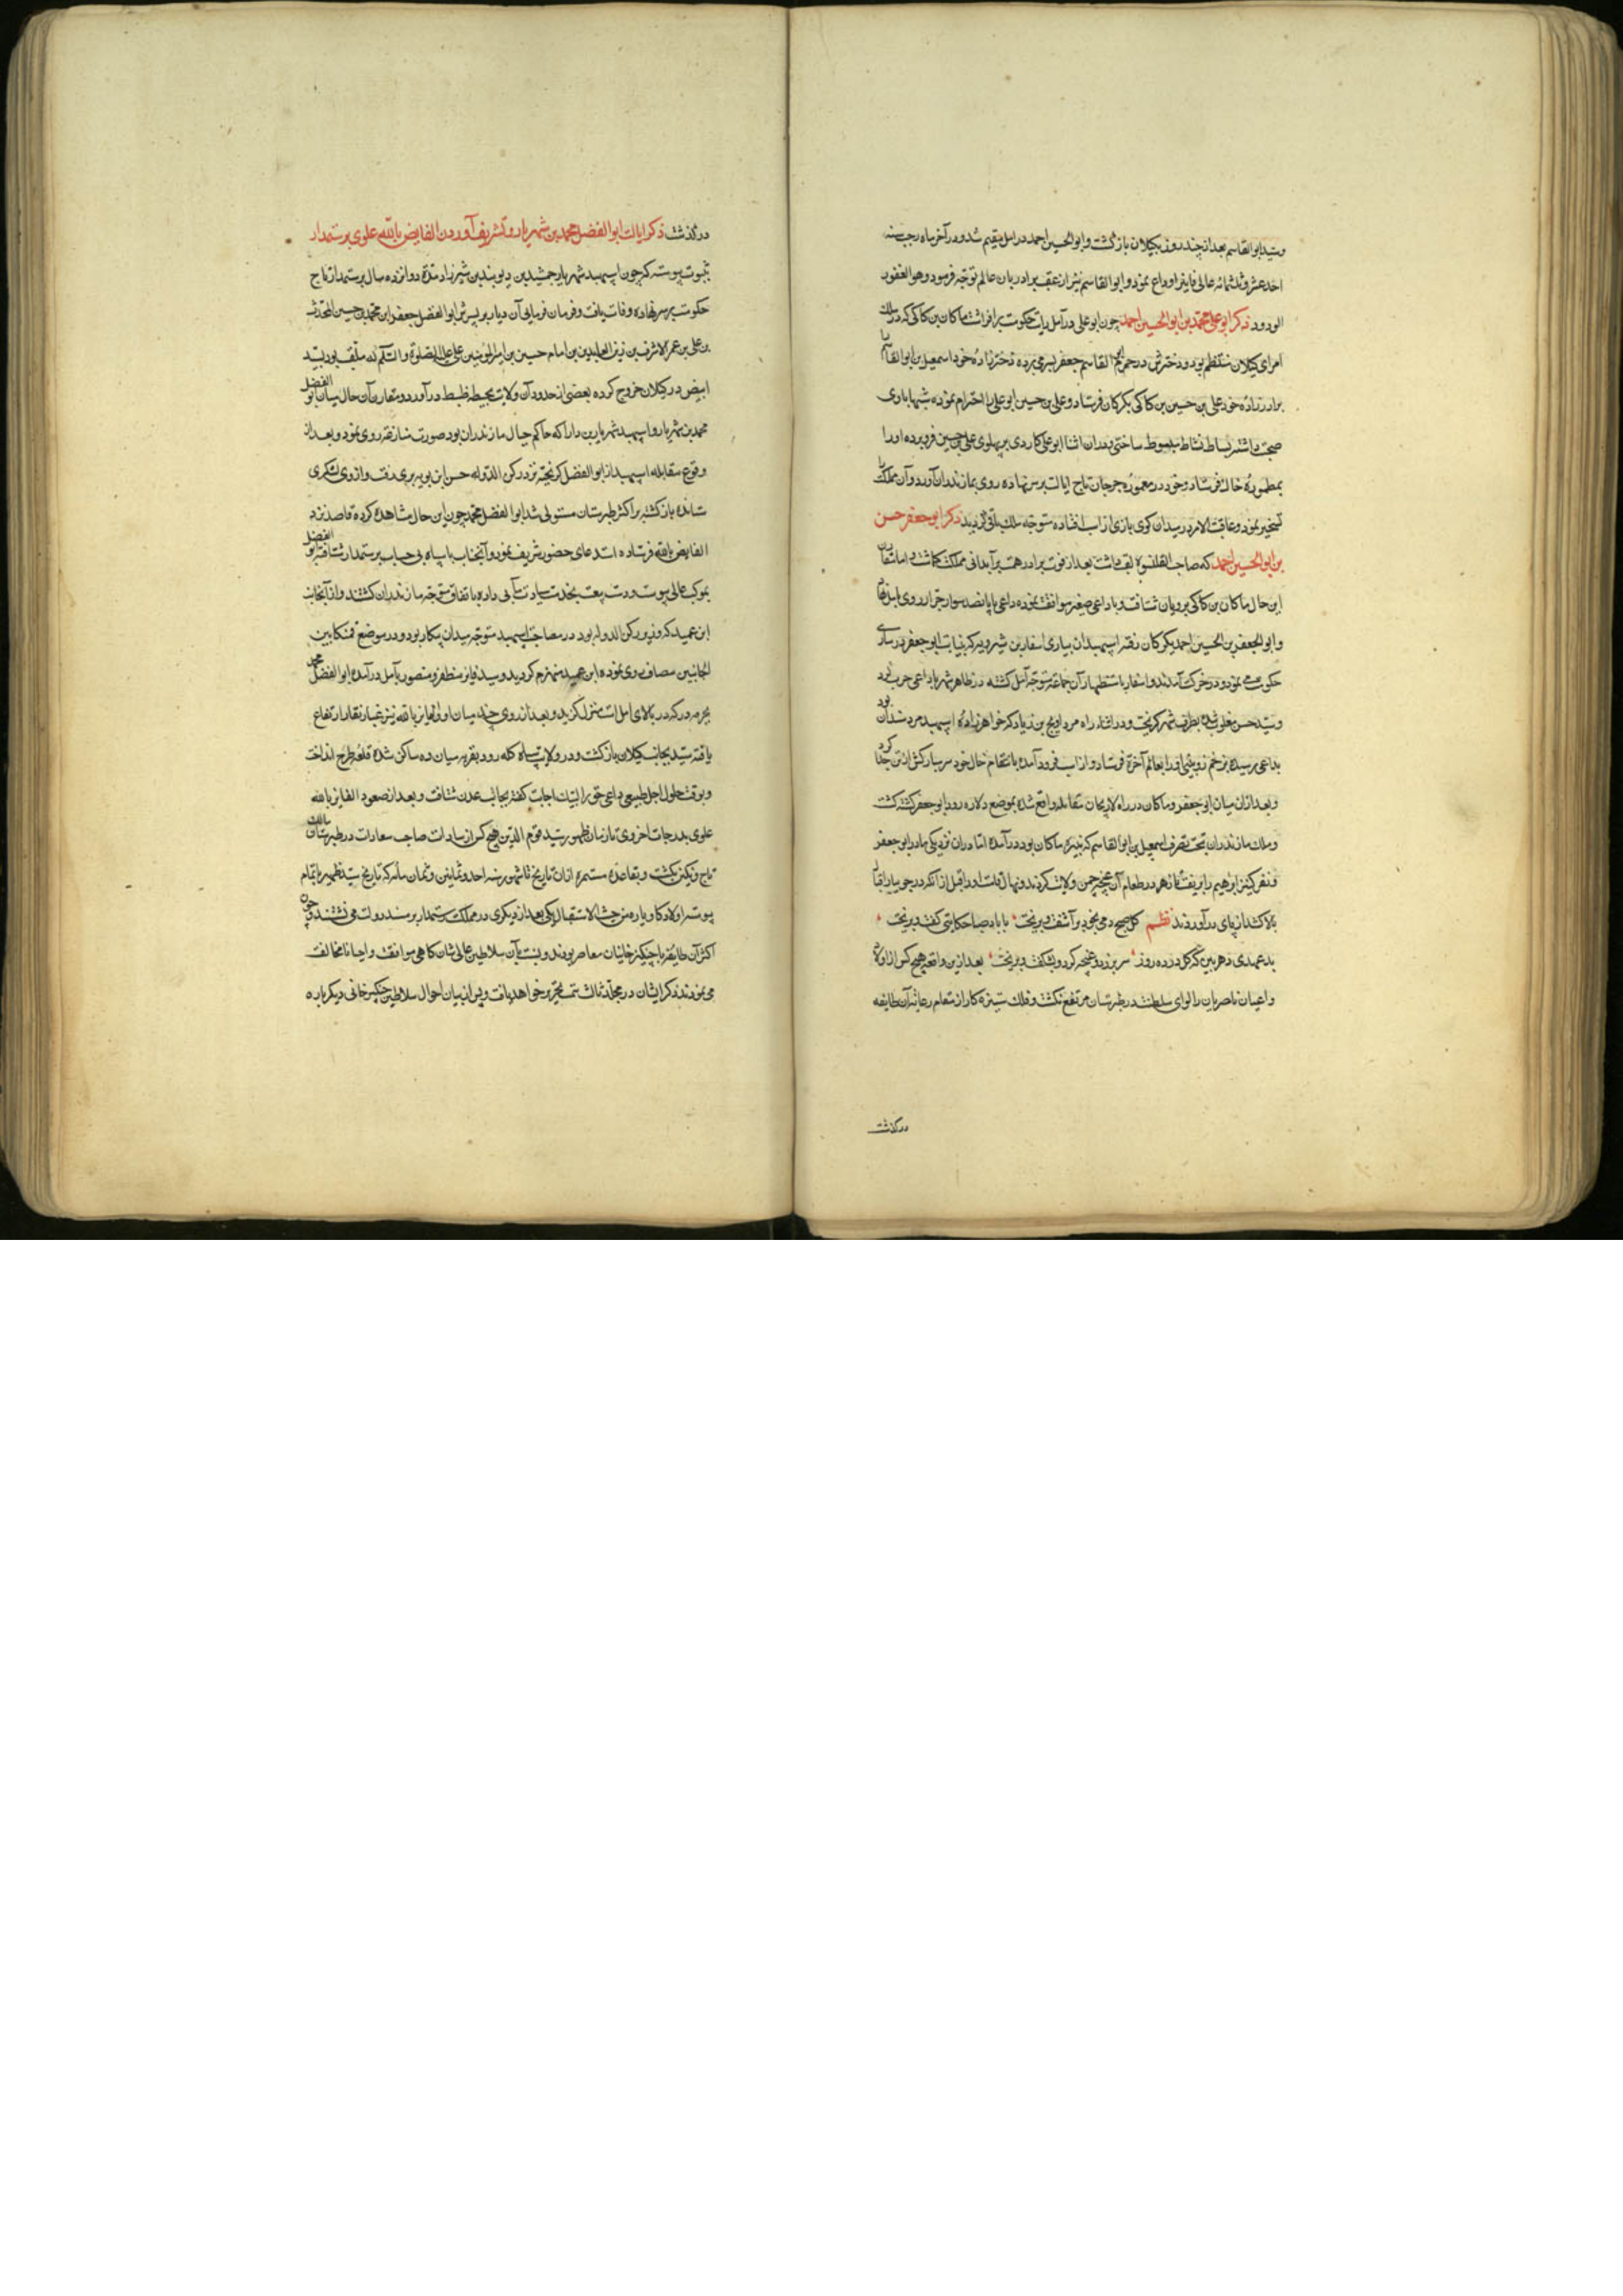 و سید ابوالقاسم بعد از چند روز بکیلان بازکشت و ابوالحسین احمد در امل مقیم شد و در آخر ماه رجب سنه
احد عشر و ثلثمائه عالم فانی را وداع نمود و ابوالقاسم نیز از عقب برادر بدان عالم توجه فرمود و هو الغفور
الودود ذکر ابو علی محمد بن ابوالحسین احمد چون ابو علی در آمل رایت حکومت برافراشت ماکان بن کاکی که در سلک
امرای کیلان منتظم بود و دخترش در حرم ابوالقاسم جعفر بسر می برده دخترزاده خود اسمعیل بن ابوالقاسم را
برادرزاده خود علی بن حسین بن کاکی بکرکان فرستاد و علی بن حسین ابو علی را احترام نموده شبها باوی
صحبت داشته بساط نشاط مبسوط ساختی در آن اثنا ابو علی کاردی بر پهلوی علی بن حسین فرو برده او را
بمطموره خاک فرستاد و خود در معموره جرجان تاج ایالت بر سر نهاده روی بمازندران آورد و آن مملکت را
تسخیر نمود و عاقبت الامر در میدان کوی بازی از اسب افتاده متوجه ملک باقی کردید ذکر ابو جعفر حسن
بن ابوالحسین احمد که صاحب القلنسوه لقب داشت بعد از فوت برادر همت بر آبادانی مملکت کماشت اما مقارن
این حال ماکان بن کاکی برویان شتافت و با داعی صغیر موافقت نموده داعی با پانصد سوار جرار روی بامل نهاد
و ابوالجعفر بن الحسین احمد بکرکان رفته اسپهبدان بیاری اسفار بن شیرویه که بنیابت ابو جعفر در ساری
حکومت می نمود در حرکت آمدند و اسفار باستظهار آن جماعة متوجه آمل کشته در ظاهر شهر با داعی حرب کرد
و سید حسن مغلوب شده بطرف شهر کریخت و در اثناء راه مرداویج بن زیاد که خواهرزاده اسپهبد مرد شدان بود
بداعی رسیده بزخم زوبینی او را بعالم آخرة فرستاد و از اسب فرود آمده بانتقام خال خود سر مبارکش از تن جدا کرد
و بعد از آن میان ابو جعفر و ماکان در راه لاریجان مقابله واقع شده بموضع دلاره رود ابو جعفر کشته کشت
و ملک مازندران بتحت تصرف اسمعیل بن ابوالقاسم که نبیره ماکان بود در آمده اما در آن نزدیکی مادر ابو جعفر
دو نفر کنیز ابرهیم را بریفت تا زهر در طعام آن غنچه چمن ولایت کردند و نهال قامت او را قبل از آنکه در جویبار اقبال
بالا کشد از پای در آوردند نظم کل صبح دمی بخود بر آشفت و بریخت با باد صبا حکایتی کفت و بریخت
بدعهدی دهر بین که کل در ده روز سر بر زد و غنچه کرد و بشکفت و بریخت بعد ازین واقعه هیچ کس از اولاد
و اعیان ناصریان را لوای سلطنت در طبرستان مرتفع نکشت و فلک ستیزه کار از مقام رعایت آن طایفه
درکذشت
درکذشت ذکر ایالت ابوالفضل محمد بن شهریار و تشریف آوردن الفایض بالله علوی برستمدار
بثبوت پیوسته که چون اسپهبد شهریار بن جمشید بن دیوبند بن شیرزاد مدة دوازده سال برستمدار تاج
حکومت بر سر نهاده وفات یافت و فرمان فرمایی آن دیار بر پسرش ابوالفضل جعفر ابن محمد بن حسین المحدث
بن علی بن عمر الاشرف بن زین العابدین بن امام حسین بن امیرالمؤمنین علی علیه الصلوة والسلام که ملقب بود بسید
ابیض در کیلان خروج کرده بعضی از حدود آن ولایت بحیطه ضبط در آورد و مقارن آن حال میان ابو الفضل
محمد بن شهریار و اسپهبد شهریار بن دارا که حاکم جبال مازندران بود صورت منازعه روی نمود و بعد از
وقوع مقابله اسپهبد از ابوالفضل کریخته نزد رکن الدوله حسن ابن بویه بری رفت و از وی لشکری
ستانده بازکشته بر اکثر طبرستان مستولی شد ابوالفضل محمد چون این حال مشاهده کرده قاصد نزد
الفایض بالله فرستاده استدعای حضور شریف نمود و آنجناب با سپاه بی حساب برستمدار شتافته ابو الفضل
بموکب عالی پیوست و دست بیعت بخدمت سیادت مآبی داده باتفاق متوجه مازندران کشتند و از آنجانب
ابن عمید که وزیر رکن الدوله بود در مصاحبت اسپهبد متوجه میدان پیکار بود و در موضع تمنکا بین
الجانبین مصاف روی نموده ابن عمید منهزم کردید و سید فایز مظفر و منصور بآمل در آمده ابوالفضل محمد
بخرمه در که در بالای امل است منزل کزید و بعد از روزی چند میان او و الفایز بالله نیز غبار نقار ارتفاع
یافته سید بجانب کیلان بازکشت و در ولایت سیاه کله رود بقریه میان ده ساکن شده قلعه طرح انداخت
و بوقت حلول اجل طبیعی داعی حق را لبیک اجابت کفته بجانب عدن شتافت و بعد از صعود الفایز بالله
علوی بدرجات اخروی تا زمان ظهور سید قوم الدین هیچ کس از سادات صاحب سعادات در طبرستان مالک
تاج و نکین نکشت و بقاعده مستمره از آن تاریخ تا شهور سنه احد و ثمانین و ثمان مأه که تاریخ سید ظهیر باتمام
پیوسته اولاد کاوباره من حیث الاستقبال یکی بعد از دیکری در مملکت رستمدار بر مسند دولت می نشستند و چون
اکثر آن طایفه با چنکیز خانیان معاصر بودند و نسبت بآن سلاطین عالی شان کاهی موافقت و احیانا مخالفت
می نمودند ذکر ایشان در مجلد ثالث سمت تحریر خواهد یافت و پس از بیان احوال سلاطین چنکیز خانی دیکر باره